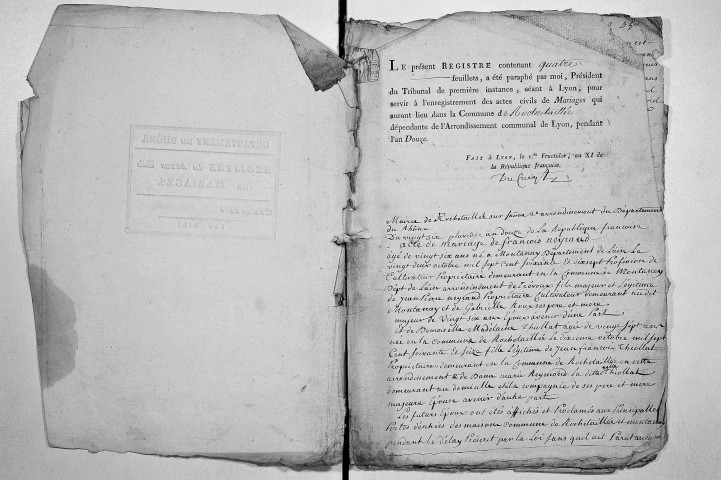 LE présent REGISTRE contenant quatre
feuillets, a été paraphé par moi, Président
du Tribunal de première instance, séant à Lyon, pour
servir à l'enregistrement des actes civils de Mariages qui
auront lieu dans la Commune de Rochetaillée
dépendante de l'Arrondissement communal de Lyon, pendant
l'an Douze.
FAIT à LYON, le 1.er Fructidor, an XI de
la République française.
Mairie de Rochetaillée sur saône 2e arrondissement du Département
du Rhône
Du vingt six pluviose an douze de La République francoise
acte de mariage de francois neyrand
agé de vingt six ans né a Montanay Département de Lain Le
vingt deux octobre mil sept cent soixante et dixsept profession de
Cultivateur Propriétaire demeurant en la Commune de Montanay
Dépt de Lain arrondissement de Trévoux fils majeur et Légitime
de Jean Pierre neyrand Propriétaire Cultivateur demeurant audit
Montanay et de Gabrielle Roux ses pere et mere
majeur de vingt six ans Epoux avenir d'une Part
Et de Demoiselle Madelaine Thiollat agée de vingt sept ans
née en la commune de Rochetaillée Le dixieme octobre mil sept
Cent soixante et seize fille Légitime de Jean francois Thiollat
Propriétaire demeurant en la Commune de Rochetaillée en cette
arrondissement et de Dame marie la ditte Thiollat
demeurant au domicille et a la compagnie de ses pere et mere
majeure Epouse avenir d'autre part
Les futurs Epoux ont etés affichés et Proclamés aux Principalles
Portes d'entrées des maisons commune de Rochetaillée et montanay
pendant le délay Préscrit par la Loi sans quil net Parut aucune